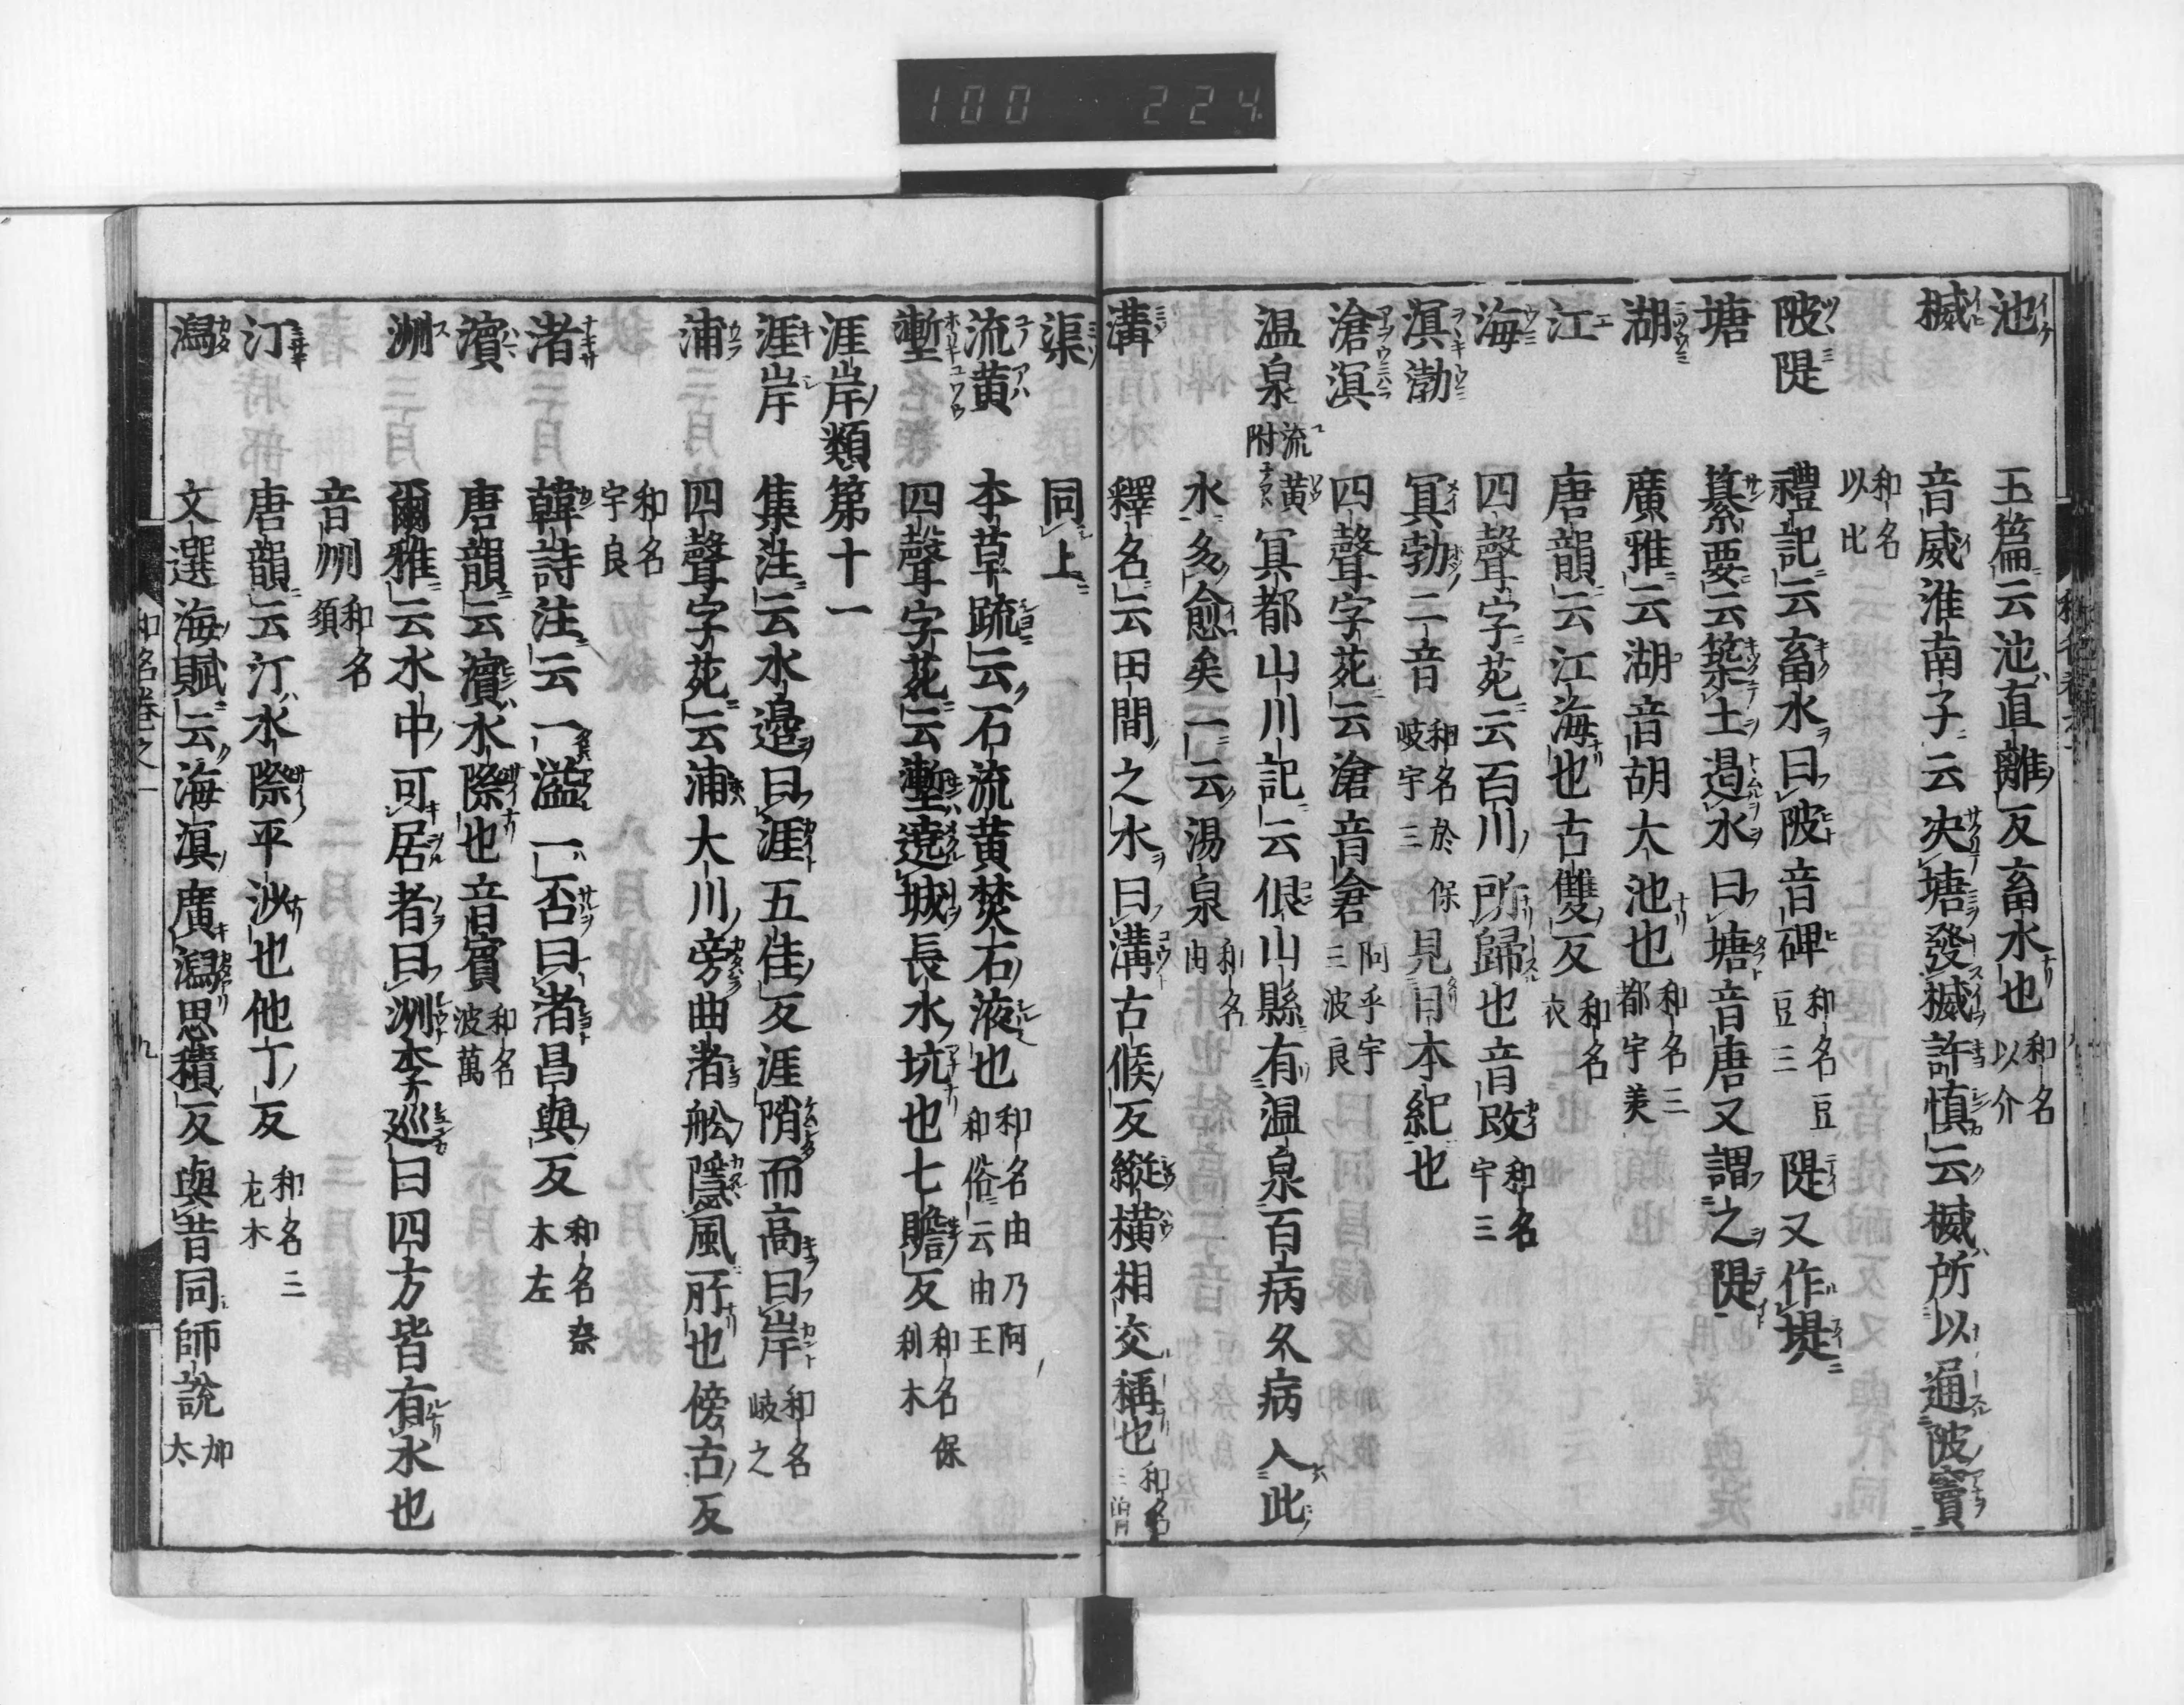 100 224
池 玉篇云池直離反畜水也和名以介
楲 音威淮南子云决塘發楲許慎云楲所以通陂竇
和名以比
陂隄 禮記云畜水曰陂音碑和名豆豆三隄又作堤
塘 纂要云築土遏水曰塘音唐又謂之隄
湖 廣雅云湖音胡大池也和名三都宇美
江 唐韻云江海也古雙反和名衣
海 四聲字苑云百川所歸也音改和名宇三
溟渤 冥勃二音和名於保岐宇三見日本紀也
滄溟 四聲字苑云滄音倉阿乎宇三波良
温泉流黄附 冥都山川記云佷山縣有温泉百病久病入此
水多愈矣一云湯泉和名由
溝 釋名云田間之水曰溝古候反縱横相交稱也和名三
渠 同上
流黄 本草疏云石流黄焚石液也和名由乃阿和俗云由王
塹 四聲字苑云塹遶城長水坑也七贍反和名保利木
涯岸類第十一
涯岸 集注云水邊曰涯五佳反涯陗而高曰岸和名岐之
浦 四聲字苑云浦大川旁曲渚舩隱風所也傍古反
和名宇良
渚 韓詩注云一溢一否曰渚昌與反和名奈木左
濱 唐韻云濱水際也音賓和名波萬
洲 爾雅云水中可居者曰洲李巡曰四方皆有水也
音州和名須
汀 唐韻云汀水際平沙也他丁反和名三木
潟 文選海賦云海溟廣潟思積反與昔同師說加太
和名卷之一 九